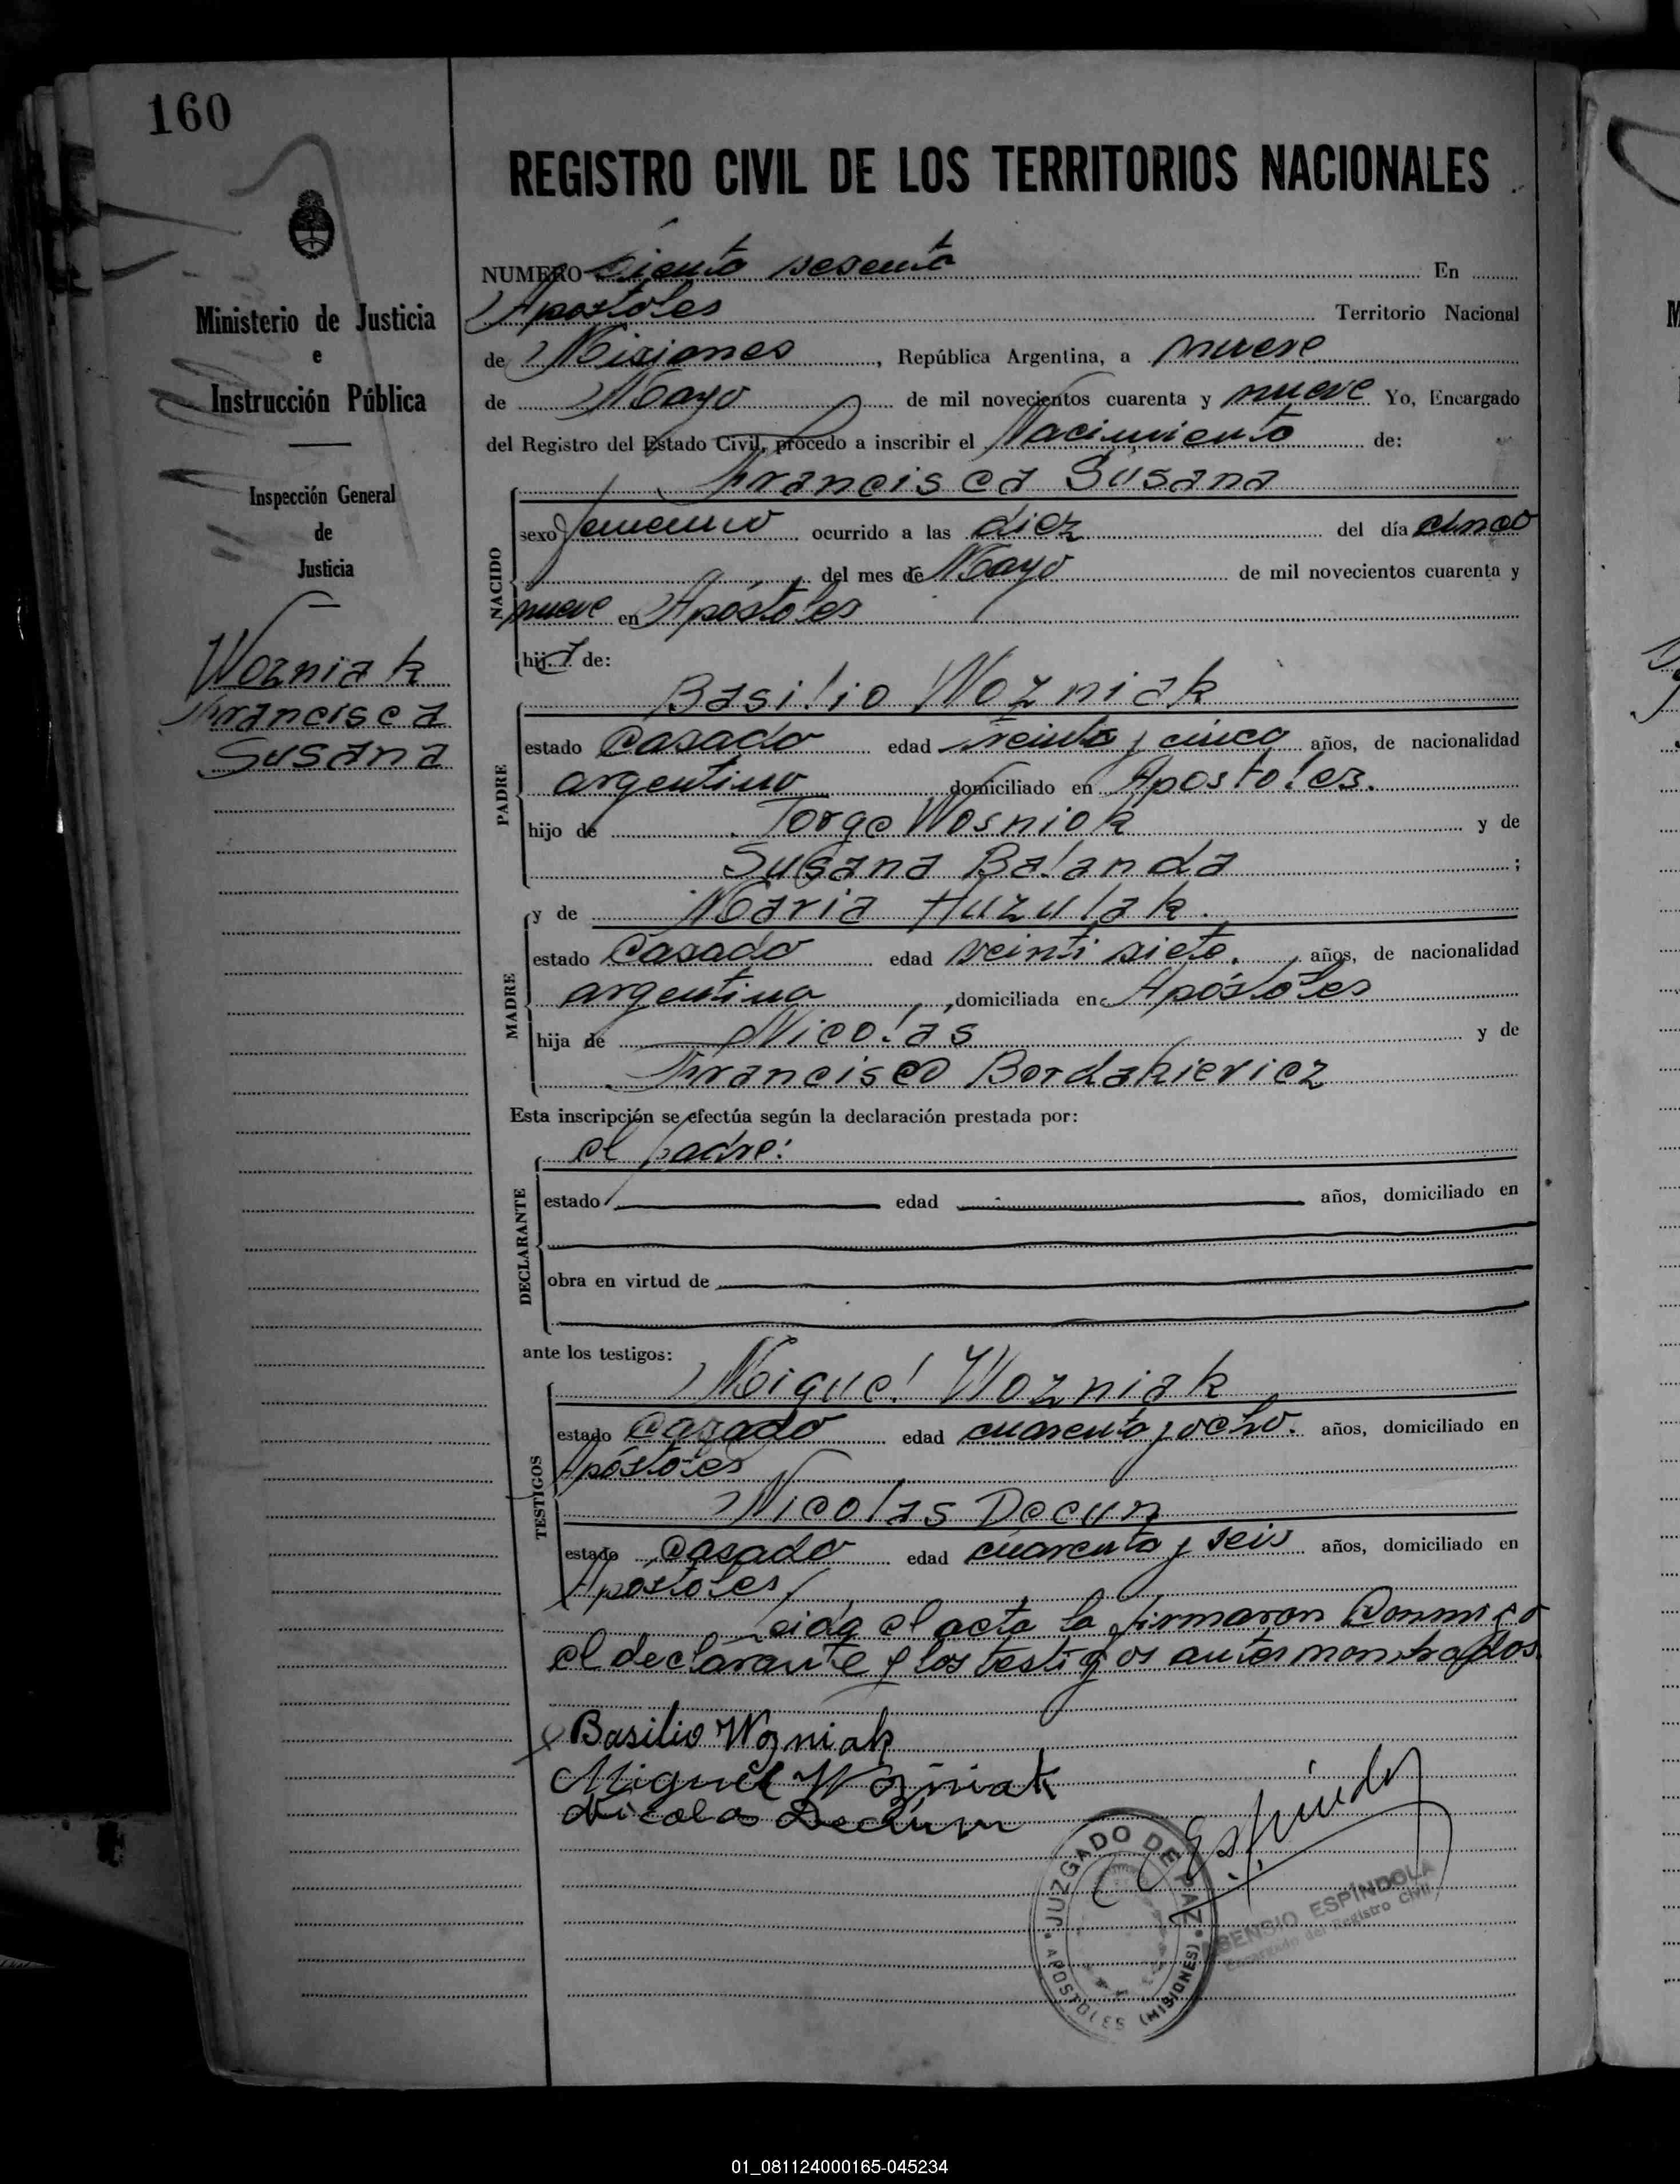 160
REGISTRO CIVIL DE LOS TERRITORIOS NACIONALES
Ministerio de Justicia
e
Instrucción Pública
Inspección General
de
Justicia
Wozniak
Francisca
Susana
NUMERO Ciento sesenta En
Apostoles Territorio Nacional
de Misiones, República Argentina, a nueve
de Mayo de mil novecientos cuarenta y nueve Yo, Encargado
del Registro del Estado Civil, procedo a inscribir el Nacimiento de:
Francisca Susana
NACIDO
sexo femenino ocurrido a las diez del día cinco
del mes de Mayo de mil novecientos cuarenta y
nueve en Apóstoles
hija de:
Basilio Wozniak
PADRE
estado Casado edad treinta y cinco años, de nacionalidad
argentino domiciliado en Apostoles.
hijo de Jorge Wosniok y de
Susana Balanda ;
y de Maria Huzulak.
MADRE
estado Casado edad veinti siete. años, de nacionalidad
argentina, domiciliada en Apóstoles
hija de Nicolas y de
Francisca Bordakievicz
Esta inscripción se efectúa según la declaración prestada por:
el padre:
DECLARANTE
estado edad años, domiciliado en
obra en virtud de
ante los testigos:
Miguel Wozniak
TESTIGOS
estado Casado edad cuarenta y ocho. años, domiciliado en
Apóstoles
Nicolas Decun
estado Casado edad cuarenta y seis años, domiciliado en
Apostoles
Leida el acta la firmaron Conmigo
el declarante y los testigos antes monstrados.
Basilio Wozniak
Miguel Wozniak
Nicolas Decun
C Espíndola
JUZGADO DE PAZ
APOSTOLES (MISIONES)
ASENSIO ESPÍNDOLA
Encargado del Registro Civil
01_081124000165-045234